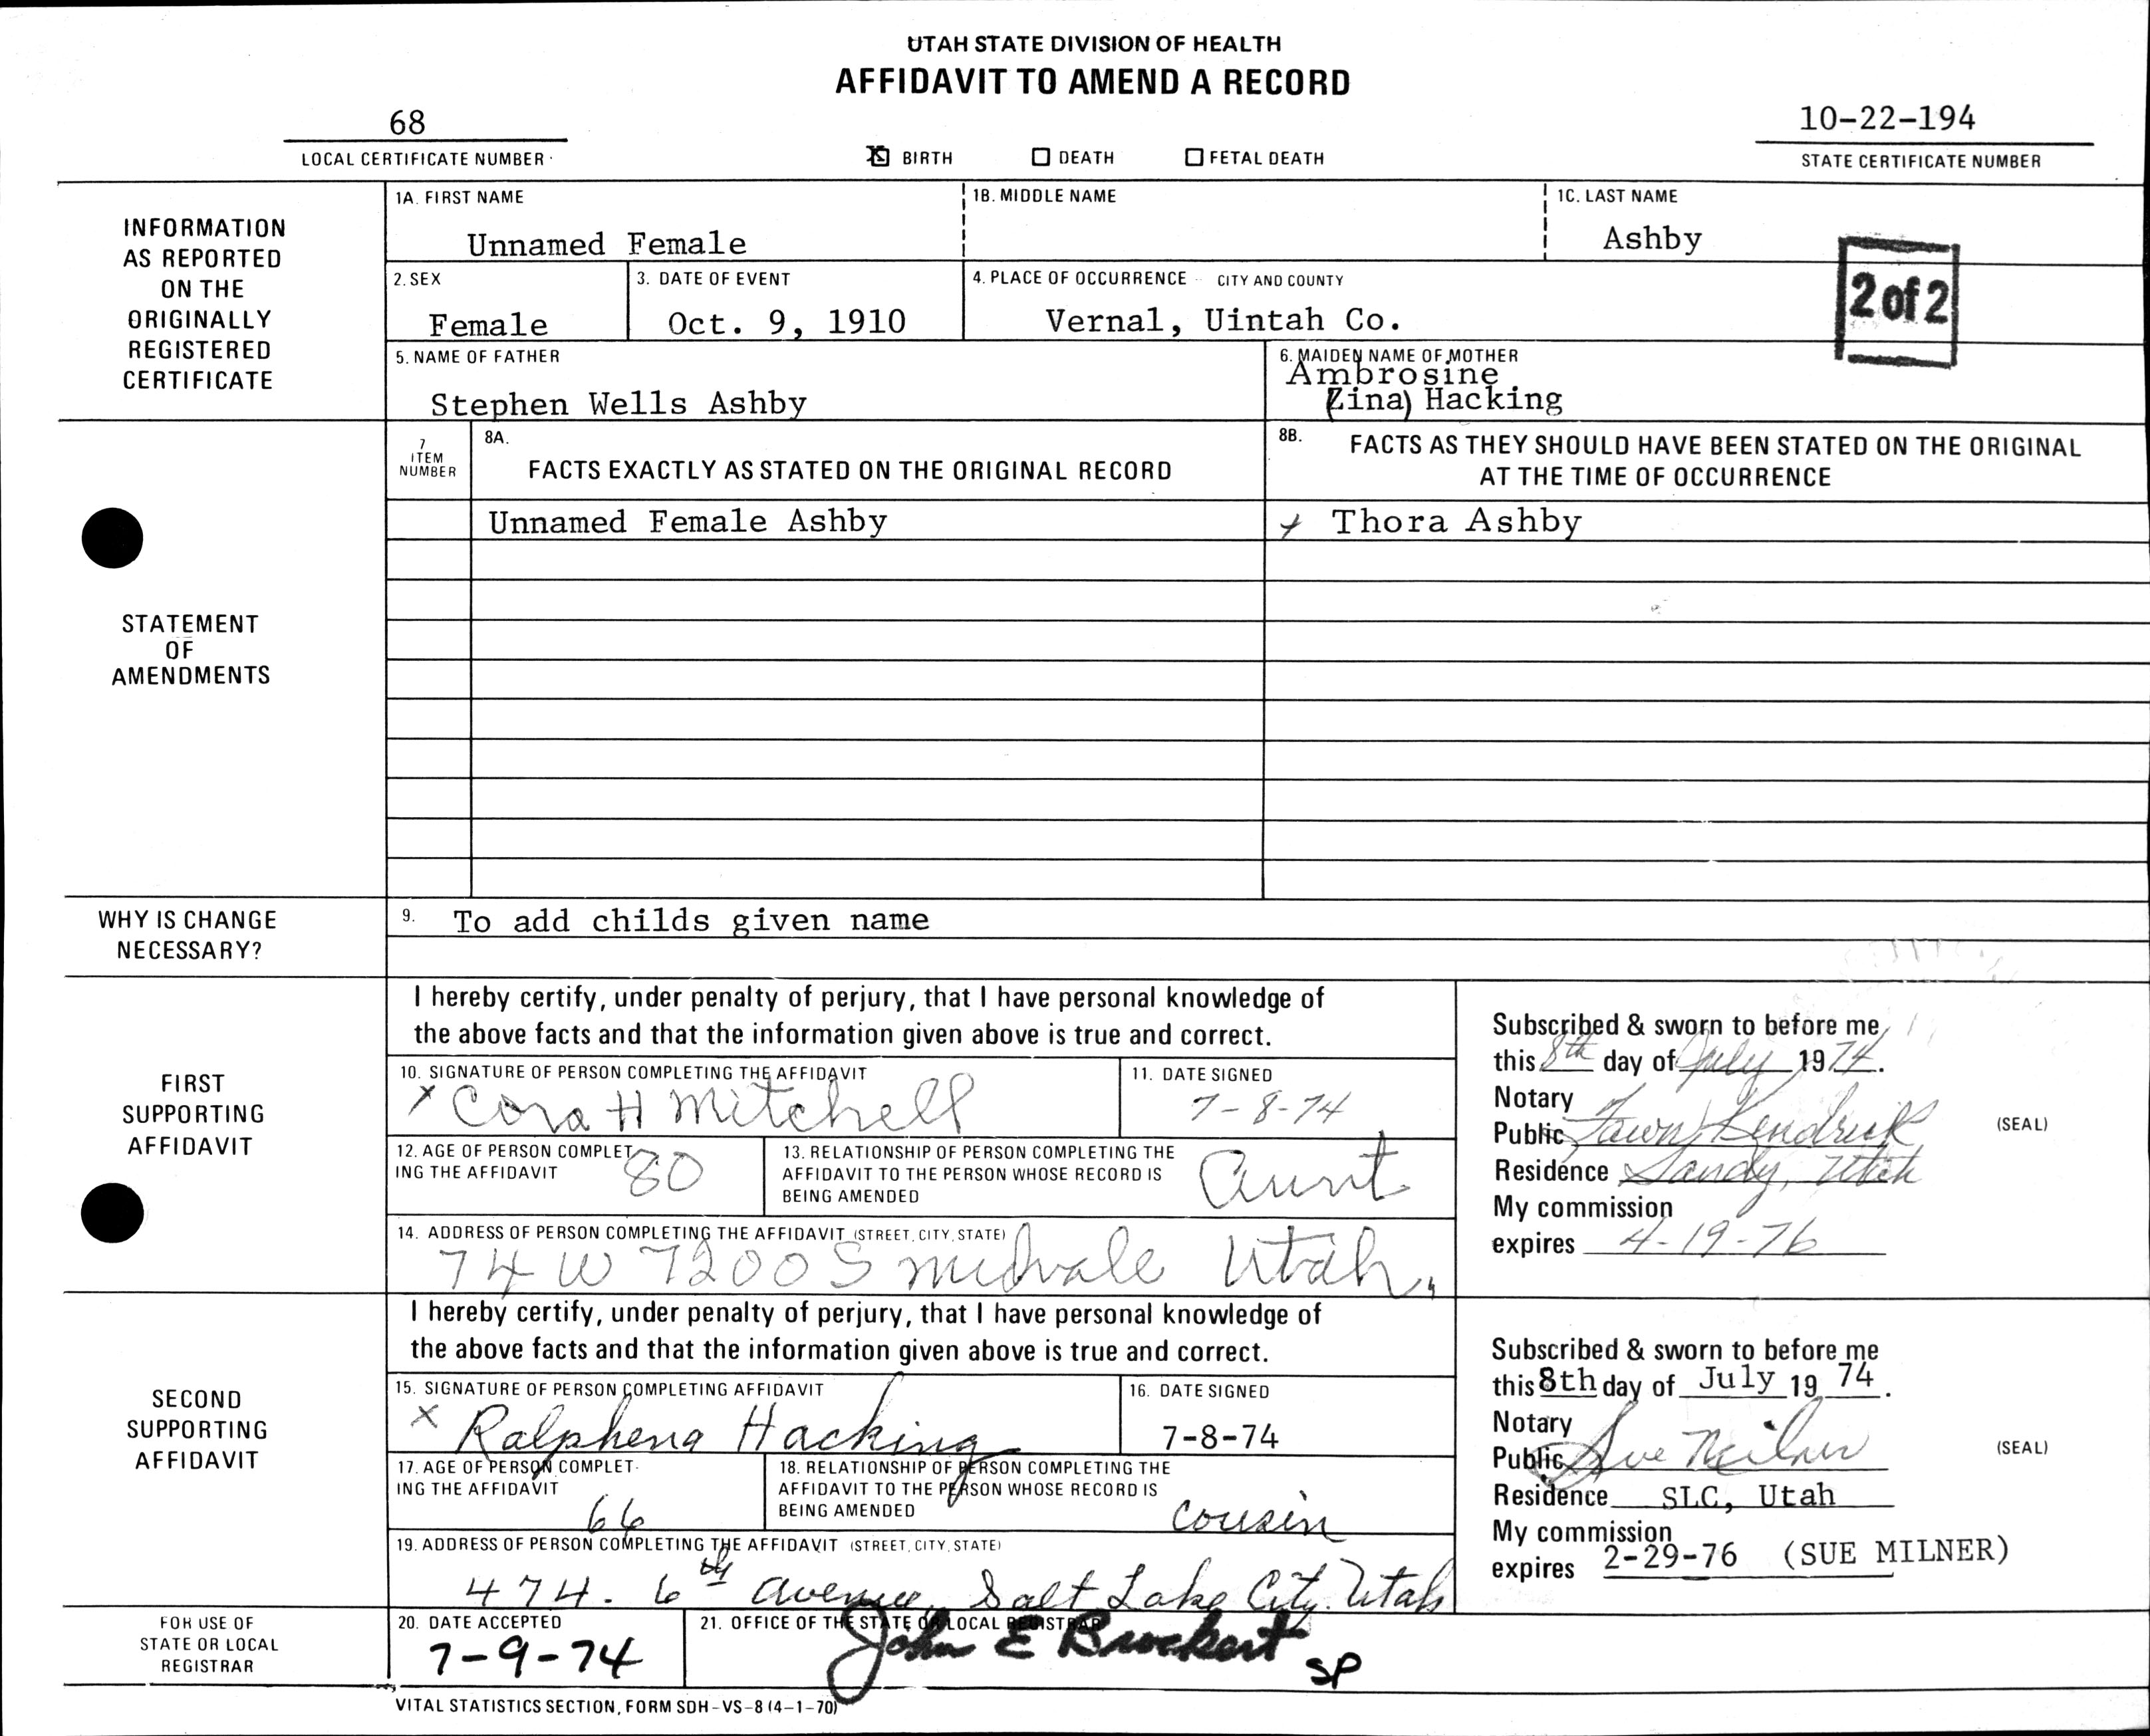 UTAH STATE DIVISION OF HEALTH
AFFIDAVIT TO AMEND A RECORD
68
LOCAL CERTIFICATE NUMBER
☒ BIRTH ☐ DEATH ☐ FETAL DEATH
10-22-194
STATE CERTIFICATE NUMBER
INFORMATION
AS REPORTED
ON THE
ORIGINALLY
REGISTERED
CERTIFICATE
1A. FIRST NAME
Unnamed Female
1B. MIDDLE NAME
1C. LAST NAME
Ashby
2 of 2
2. SEX
Female
3. DATE OF EVENT
Oct. 9, 1910
4. PLACE OF OCCURRENCE - CITY AND COUNTY
Vernal, Uintah Co.
5. NAME OF FATHER
Stephen Wells Ashby
6. MAIDEN NAME OF MOTHER
Ambrosine
(Zina) Hacking
STATEMENT
OF
AMENDMENTS
7
ITEM
NUMBER
8A.
FACTS EXACTLY AS STATED ON THE ORIGINAL RECORD
8B. FACTS AS THEY SHOULD HAVE BEEN STATED ON THE ORIGINAL
AT THE TIME OF OCCURRENCE
Unnamed Female Ashby
Thora Ashby
WHY IS CHANGE
NECESSARY?
9. To add childs given name
FIRST
SUPPORTING
AFFIDAVIT
I hereby certify, under penalty of perjury, that I have personal knowledge of
the above facts and that the information given above is true and correct.
10. SIGNATURE OF PERSON COMPLETING THE AFFIDAVIT
x Cora H Mitchell
11. DATE SIGNED
7-8-74
12. AGE OF PERSON COMPLET
ING THE AFFIDAVIT
80
13. RELATIONSHIP OF PERSON COMPLETING THE
AFFIDAVIT TO THE PERSON WHOSE RECORD IS
BEING AMENDED
Aunt
14. ADDRESS OF PERSON COMPLETING THE AFFIDAVIT (STREET, CITY, STATE)
74 W 7200 S Midvale Utah.
Subscribed & sworn to before me
this 8th day of July 1974.
Notary
Public Fawn Kendrick
(SEAL)
Residence Sandy, Utah
My commission
expires 4-19-76
SECOND
SUPPORTING
AFFIDAVIT
I hereby certify, under penalty of perjury, that I have personal knowledge of
the above facts and that the information given above is true and correct.
15. SIGNATURE OF PERSON COMPLETING AFFIDAVIT
x Ralphena Hacking
16. DATE SIGNED
7-8-74
17. AGE OF PERSON COMPLET-
ING THE AFFIDAVIT
66
18. RELATIONSHIP OF PERSON COMPLETING THE
AFFIDAVIT TO THE PERSON WHOSE RECORD IS
BEING AMENDED
cousin
19. ADDRESS OF PERSON COMPLETING THE AFFIDAVIT (STREET, CITY, STATE)
474. 6th avenue, Salt Lake City. Utah
Subscribed & sworn to before me
this 8th day of July 19 74.
Notary
Public Sue Milner
(SEAL)
Residence SLC, Utah
My commission
expires 2-29-76 (SUE MILNER)
FOR USE OF
STATE OR LOCAL
REGISTRAR
20. DATE ACCEPTED
7-9-74
21. OFFICE OF THE STATE OR LOCAL REGISTRAR
John E Brockert SP
VITAL STATISTICS SECTION, FORM SDH-VS-8 (4-1-70)